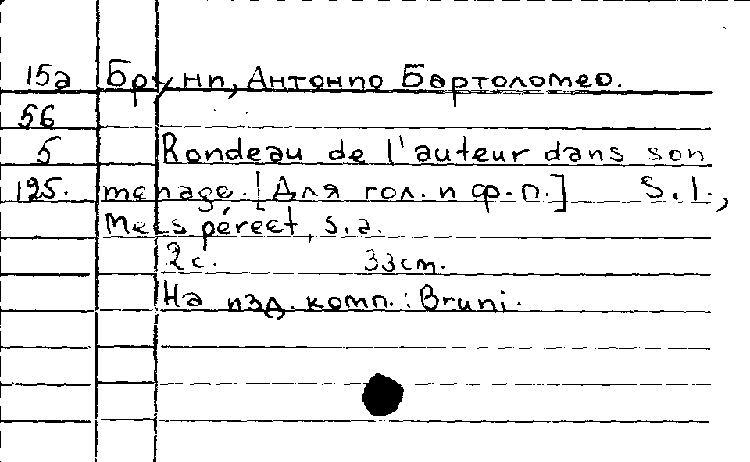 15а Бруни, Антонио Бартоломео.
56
5 Rondeau de l'auteur dans son
125. menage. [Для гол. и ф.-п.] S. l.,
Mers péreet, s. a.
2 с. 33 cm.
На изд. комп.: Bruni.